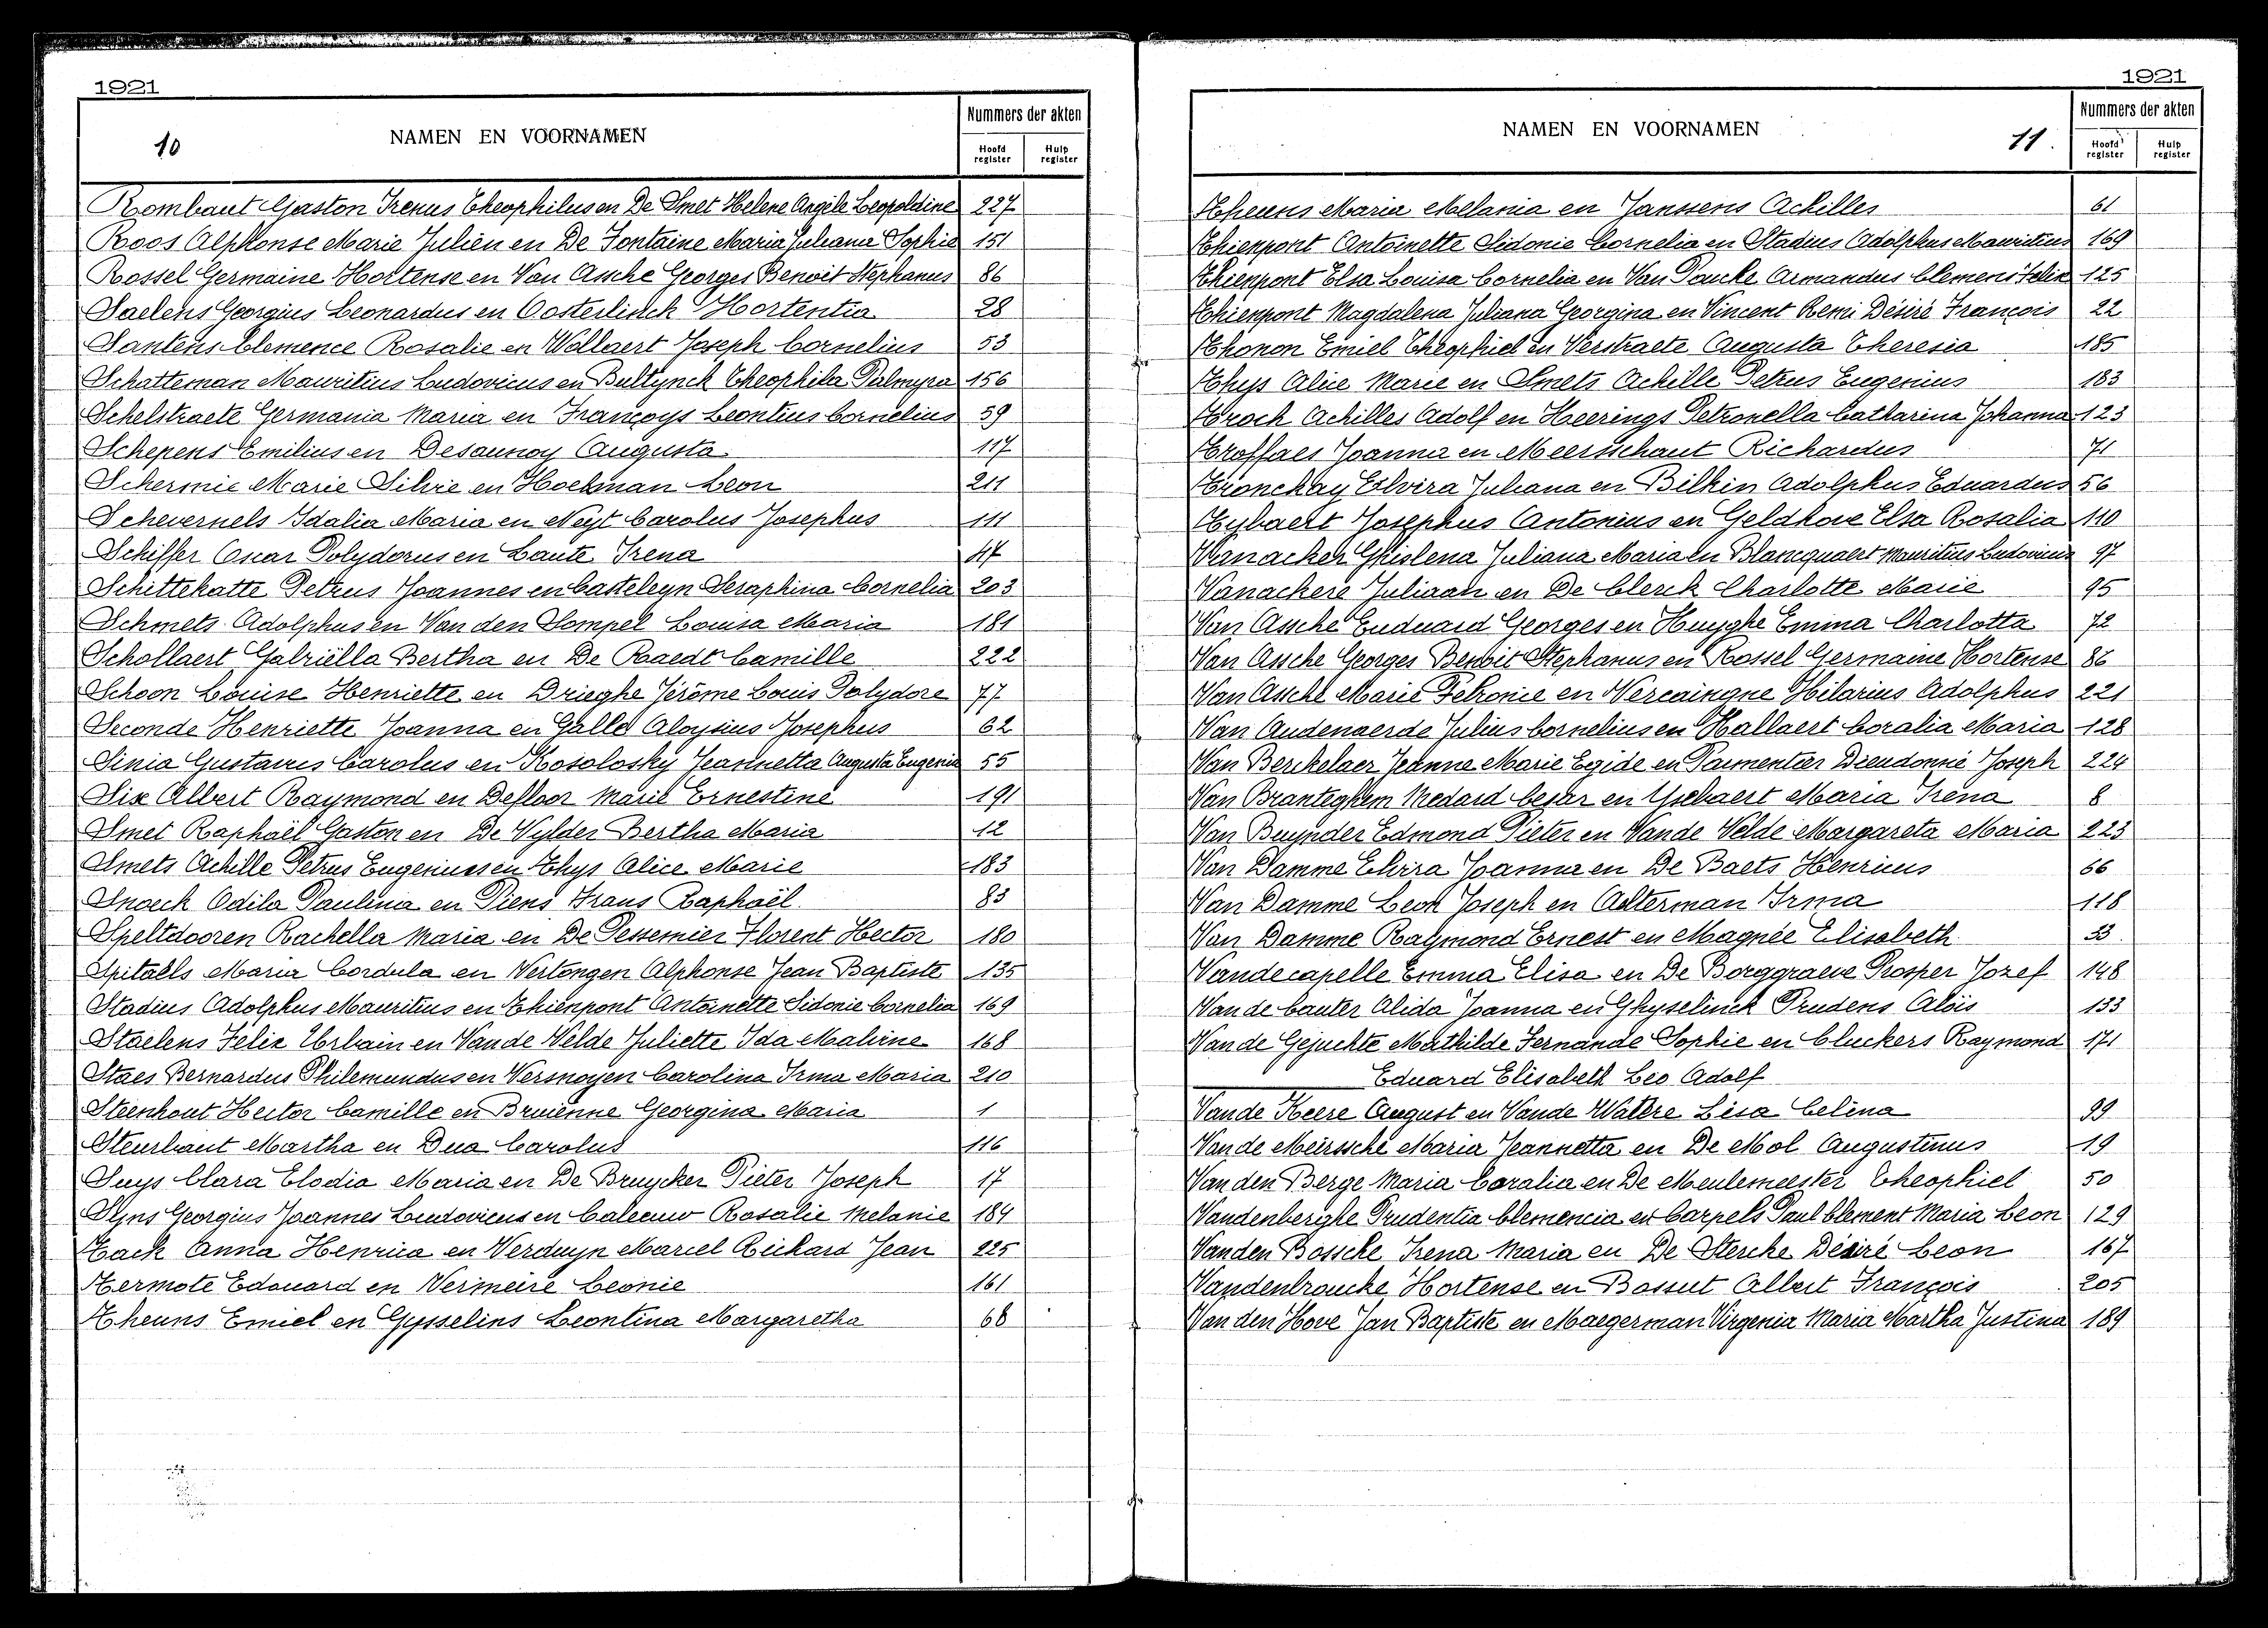 1921
10
NAMEN EN VOORNAMEN
Nummers der akten
Hoofd register
Hulp register
Rombaut Gaston Irenus Theophilus en De Smet Helene Angele Leopoldine 227
Roos Alphonse Marie Julien en De Fontaine Maria Juliana Sophie 151
Rossel Germaine Hortense en Van Assche Georges Benoit Stephanus 86
Saelens Georgius Leonardus en Oosterlinck Hortentia 28
Santens Clemence Rosalie en Wollaert Joseph Cornelius 53
Schatteman Mauritius Ludovicus en Bultynck Theophila Palmyra 156
Schelstraete Germania Maria en Françoys Leontius Cornelius 59
Schepens Emilius en Desaunoy Augusta 117
Schermie Marie Silvie en Hoekman Leon 211
Schevernels Idalia Maria en Neyt Carolus Josephus 111
Schiffer Oscar Polydorus en Laute Irena 47
Schittekatte Petrus Joannes en Casteleyn Seraphina Cornelia 203
Schmets Adolphus en Van den Sompel Louisa Maria 181
Schollaert Gabriëlla Bertha en De Raedt Camille 222
Schoon Louise Henriette en Drieghe Jérôme Louis Polydore 77
Seconde Henriette Joanna en Galle Aloysius Josephus 62
Sinia Gustavus Carolus en Kosolosky Jeannetta Augusta Eugenia 55
Six Albert Raymond en Defloor Marie Ernestine 191
Smet Raphaël Gaston en De Wylder Bertha Maria 12
Smets Achille Petrus Eugenius en Thys Alice Marie 183
Snoeck Odila Paulina en Piens Frans Raphaël 83
Speltdooren Rachella Maria en De Pessemier Florent Hector 180
Spitaels Maria Cordula en Vertongen Alphonse Jean Baptiste 135
Stadius Adolphus Mauritius en Thienpont Antoinette Sidonie Cornelia 169
Staelens Felix Urbain en Van de Velde Juliette Ida Malvine 168
Staes Bernardus Philemundus en Vermoyen Carolina Irma Maria 210
Steenhout Hector Camille en Bruienne Georgina Maria 1
Steurbaut Martha en Dua Carolus 116
Suys Clara Elodia Maria en De Bruycker Pieter Joseph 17
Syns Georgius Joannes Ludovicus en Caleeuw Rosalie Melanie 184
Tack Anna Henrica en Verduyn Marcel Richard Jean 225
Termote Edouard en Vermeire Leonie 161
Theuns Emiel en Gysselins Leontina Margaretha 68
1921
NAMEN EN VOORNAMEN
11.
Nummers der akten
Hoofd register
Hulp register
Theuns Maria Melania en Janssens Achilles 61
Thienpont Antoinette Sidonie Cornelia en Stadius Adolphus Mauritius 169
Thienpont Elsa Louisa Cornelia en Van Pancke Armandus Clemens Felix 125
Thienpont Magdalena Juliana Georgina en Vincent Remi Désiré François 22
Thonon Emiel Theophiel en Verstraete Augusta Theresia 185
Thys Alice Marie en Smets Achille Petrus Eugenius 183
Troch Achilles Adolf en Heerings Petronella Catharina Johanna 123
Troffaes Joanna en Meersschaut Richardus 71
Tronckay Elvira Juliana en Bilkin Adolphus Eduardus 56
Tybaert Josephus Antonius en Geldhove Elsa Rosalia 110
Vanacker Ghislena Juliana Maria en Blancquaert Mauritius Ludovicus 97
Vanackere Juliaan en De Clerck Charlotte Marie 95
Van Assche Eduuard Georges en Huyghe Emma Charlotta 72
Van Assche Georges Benoit Stephanus en Rossel Germaine Hortense 86
Van Assche Marie Petronie en Vercaingne Hilarius Adolphus 221
Van Audenaerde Julius Cornelius en Hallaert Coralia Maria 128
Van Berckelaer Jeanne Marie Egide en Parmentier Dieudonné Joseph 224
Van Branteghem Medard Cesar en Ysebaert Maria Irena 8
Van Buynder Edmond Pieter en Van de Velde Margareta Maria 223
Van Damme Elvira Joanna en De Baets Henricus 66
Van Damme Leon Joseph en Aelterman Irma 118
Van Damme Raymond Ernest en Magnée Elisabeth 33
Vandecapelle Emma Elisa en De Borggraeve Prosper Jozef 148
Van de Cauter Alida Joanna en Ghyselinck Prudens Aloïs 133
Van de Gejuchte Mathilde Fernande Sophie en Cluckers Raymond 171
Eduard Elisabeth Leo Adolf
Van de Keere August en Van de Watere Lisa Celina 99
Van de Meirssche Maria Jeannetta en De Mol Augustinus 19
Van den Berge Maria Coralia en De Meulemeester Theophiel 50
Vandenberghe Prudentia Clemencia en Carpels Paul Clement Maria Leon 129
Van den Bossche Irena Maria en De Stercke Désiré Leon 167
Vandenbroucke Hortense en Bossut Albert François 205
Van den Hove Jan Baptiste en Maegerman Virgenia Maria Martha Justina 189